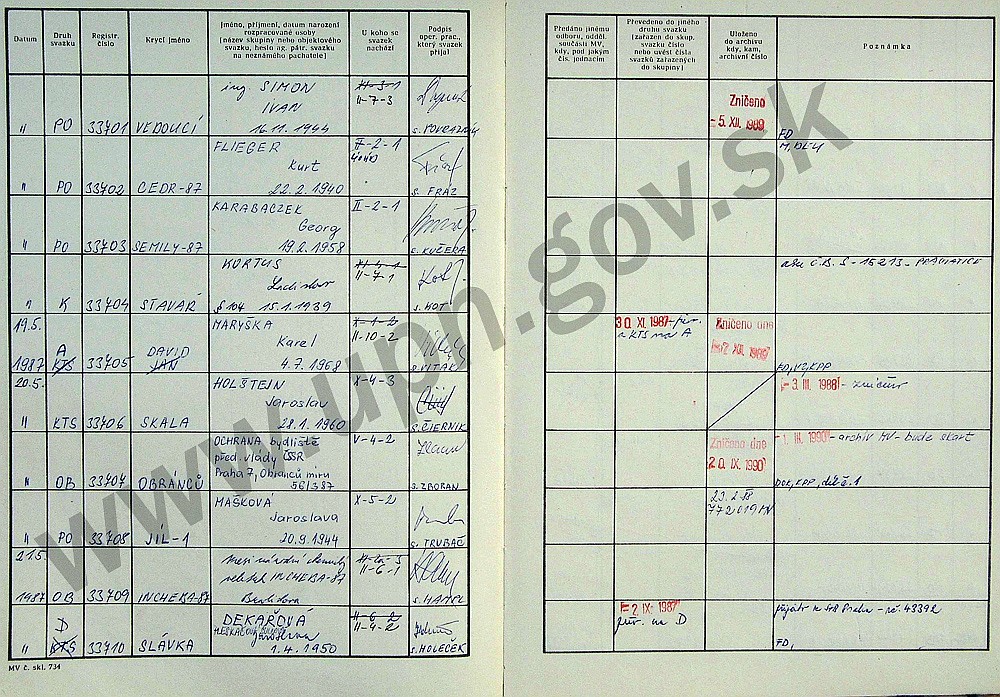 Datum
Druh
svazku
Registr.
číslo
Krycí jméno
Jméno, příjmení, datum narození
rozpracované osoby
(název skupiny nebo objektového
svazku, heslo ag. pátr. svazku
na neznámého pachatele)
U koho se
svazek
nachází
Podpis
oper. prac.,
který svazek
přijal
Předáno jinému
odboru, odděl.
součásti MV,
kdy, pod jakým
čís. jednacím
Převedeno do jiného
druhu svazku
(zařazen do skup.
svazku číslo
nebo uvést čísla
svazků zařazených
do skupiny)
Uloženo
do archivu
kdy, kam,
archivní číslo
Poznámka
ing. SIMON
IVAN
16.11.1944
II-3-1
II-7-3
" PO 33701 VEDOUCÍ
s. POVRAZNÍK
Zničeno
- 5. XII. 1989
FD
FLIEGER
Kurt
22.2.1940
II-2-1
" PO 33702 CEDR-87
s. FRÁZ
KARABACZEK
Georg
19.2.1958
II-2-1
" PO 33703 SEMILY-87
s. KUČERA
KORTUS
Ladislav
§ 104 15.1.1939
II-4-1
II-7-1
" K 33704 STAVAŘ
s. HOT
Č.B. S-15213-PRACHATICE
19.5.
1987 A
KTS 33705 DAVID
JAN
MARYŠKA
Karel
4.7.1968
X-1-2
II-10-2
s. VITÁK
30. XI. 1987
a KTS na A
Zničeno dne
XII. 1989
20.5.
" KTS 33706 SKALA
HOLŠTEIN
Jaroslav
28.1.1960
X-4-3
s. ČIERNIK
- 3. III. 1988 - zničen
" OB 33707 OBRÁNCŮ
OCHRANA bydliště
před. vlády ČSSR
Praha 7, Obránců míru
56/387
V-4-2
s. ZBORAN
Zničeno dne
20. IX. 1990
- 1. III. 1990 - archiv MV - bude skart
" PO 33708 JÍL-1
MAŠKOVÁ
Jaroslava
20.9.1944
X-5-2
s. TRUBAČ
23.2.88
772019 MV
21.5.
1987 OB 33709 INCHEBA-87
mezinárodní chemický
veletrh INCHEBA-87
Bratislava
II-6-1
s. HAMPL
D
KTS
" 33710 SLÁVKA
DEKAŘOVÁ
Jaroslava
1.4.1950
II-6-2
II-4-2
s. HOLEČEK
- 2. IX. 1987
na D
43392
FD,
MV č. skl. 734
www.upn.gov.sk